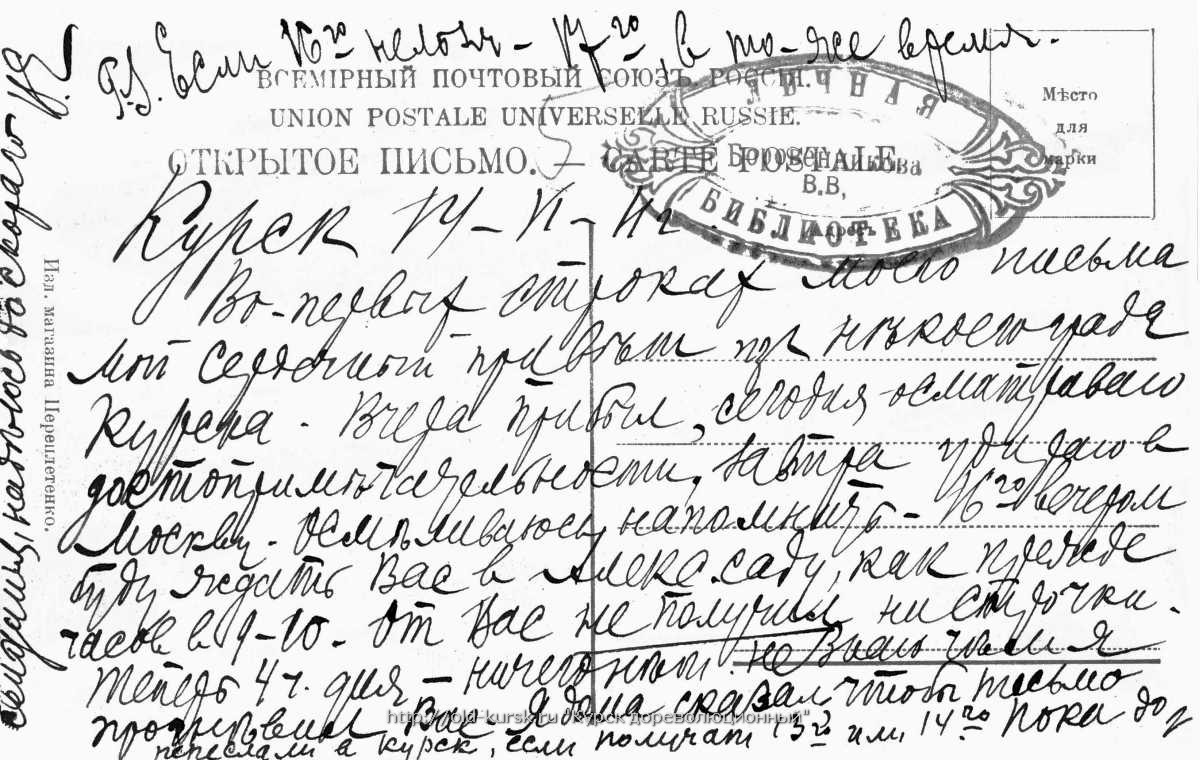 P.S. Если 16го нельзя – 17го, в то-же время.
ВСЕМІРНЫЙ ПОЧТОВЫЙ СОЮЗЪ. РОССІЯ.
UNION POSTALE UNIVERSELLE RUSSIE.
ОТКРЫТОЕ ПИСЬМО. — CARTE POSTALE.
Мѣсто
для
марки
ЛИЧНАЯ
В.В,
БИБЛИОТЕКА
Изд. магазина Переплетенко.
Курск
Во-первых строках моего письма
мой сердечный привѣт из нѣкоего града
Курска. Вчера прибыл, сегодня осматриваю
достопримѣчательности, завтра уѣзжаю в
Москву. Осмѣливаюсь напомнить – 16го вечером
буду ждать Вас в Алекс. саду, как прежде
часов в 9–10. От Вас не получил ни строчки.
Теперь 4 ч. дня – ничего нѣт. не знаю чѣм я
прогнѣвил Вас. Я дома сказал чтобы письмо
переслали в Курск, если получат 13го или 14го Пока до
свидания, надѣюсь до скораго
http://old-kursk.ru "Курск дореволюционный"